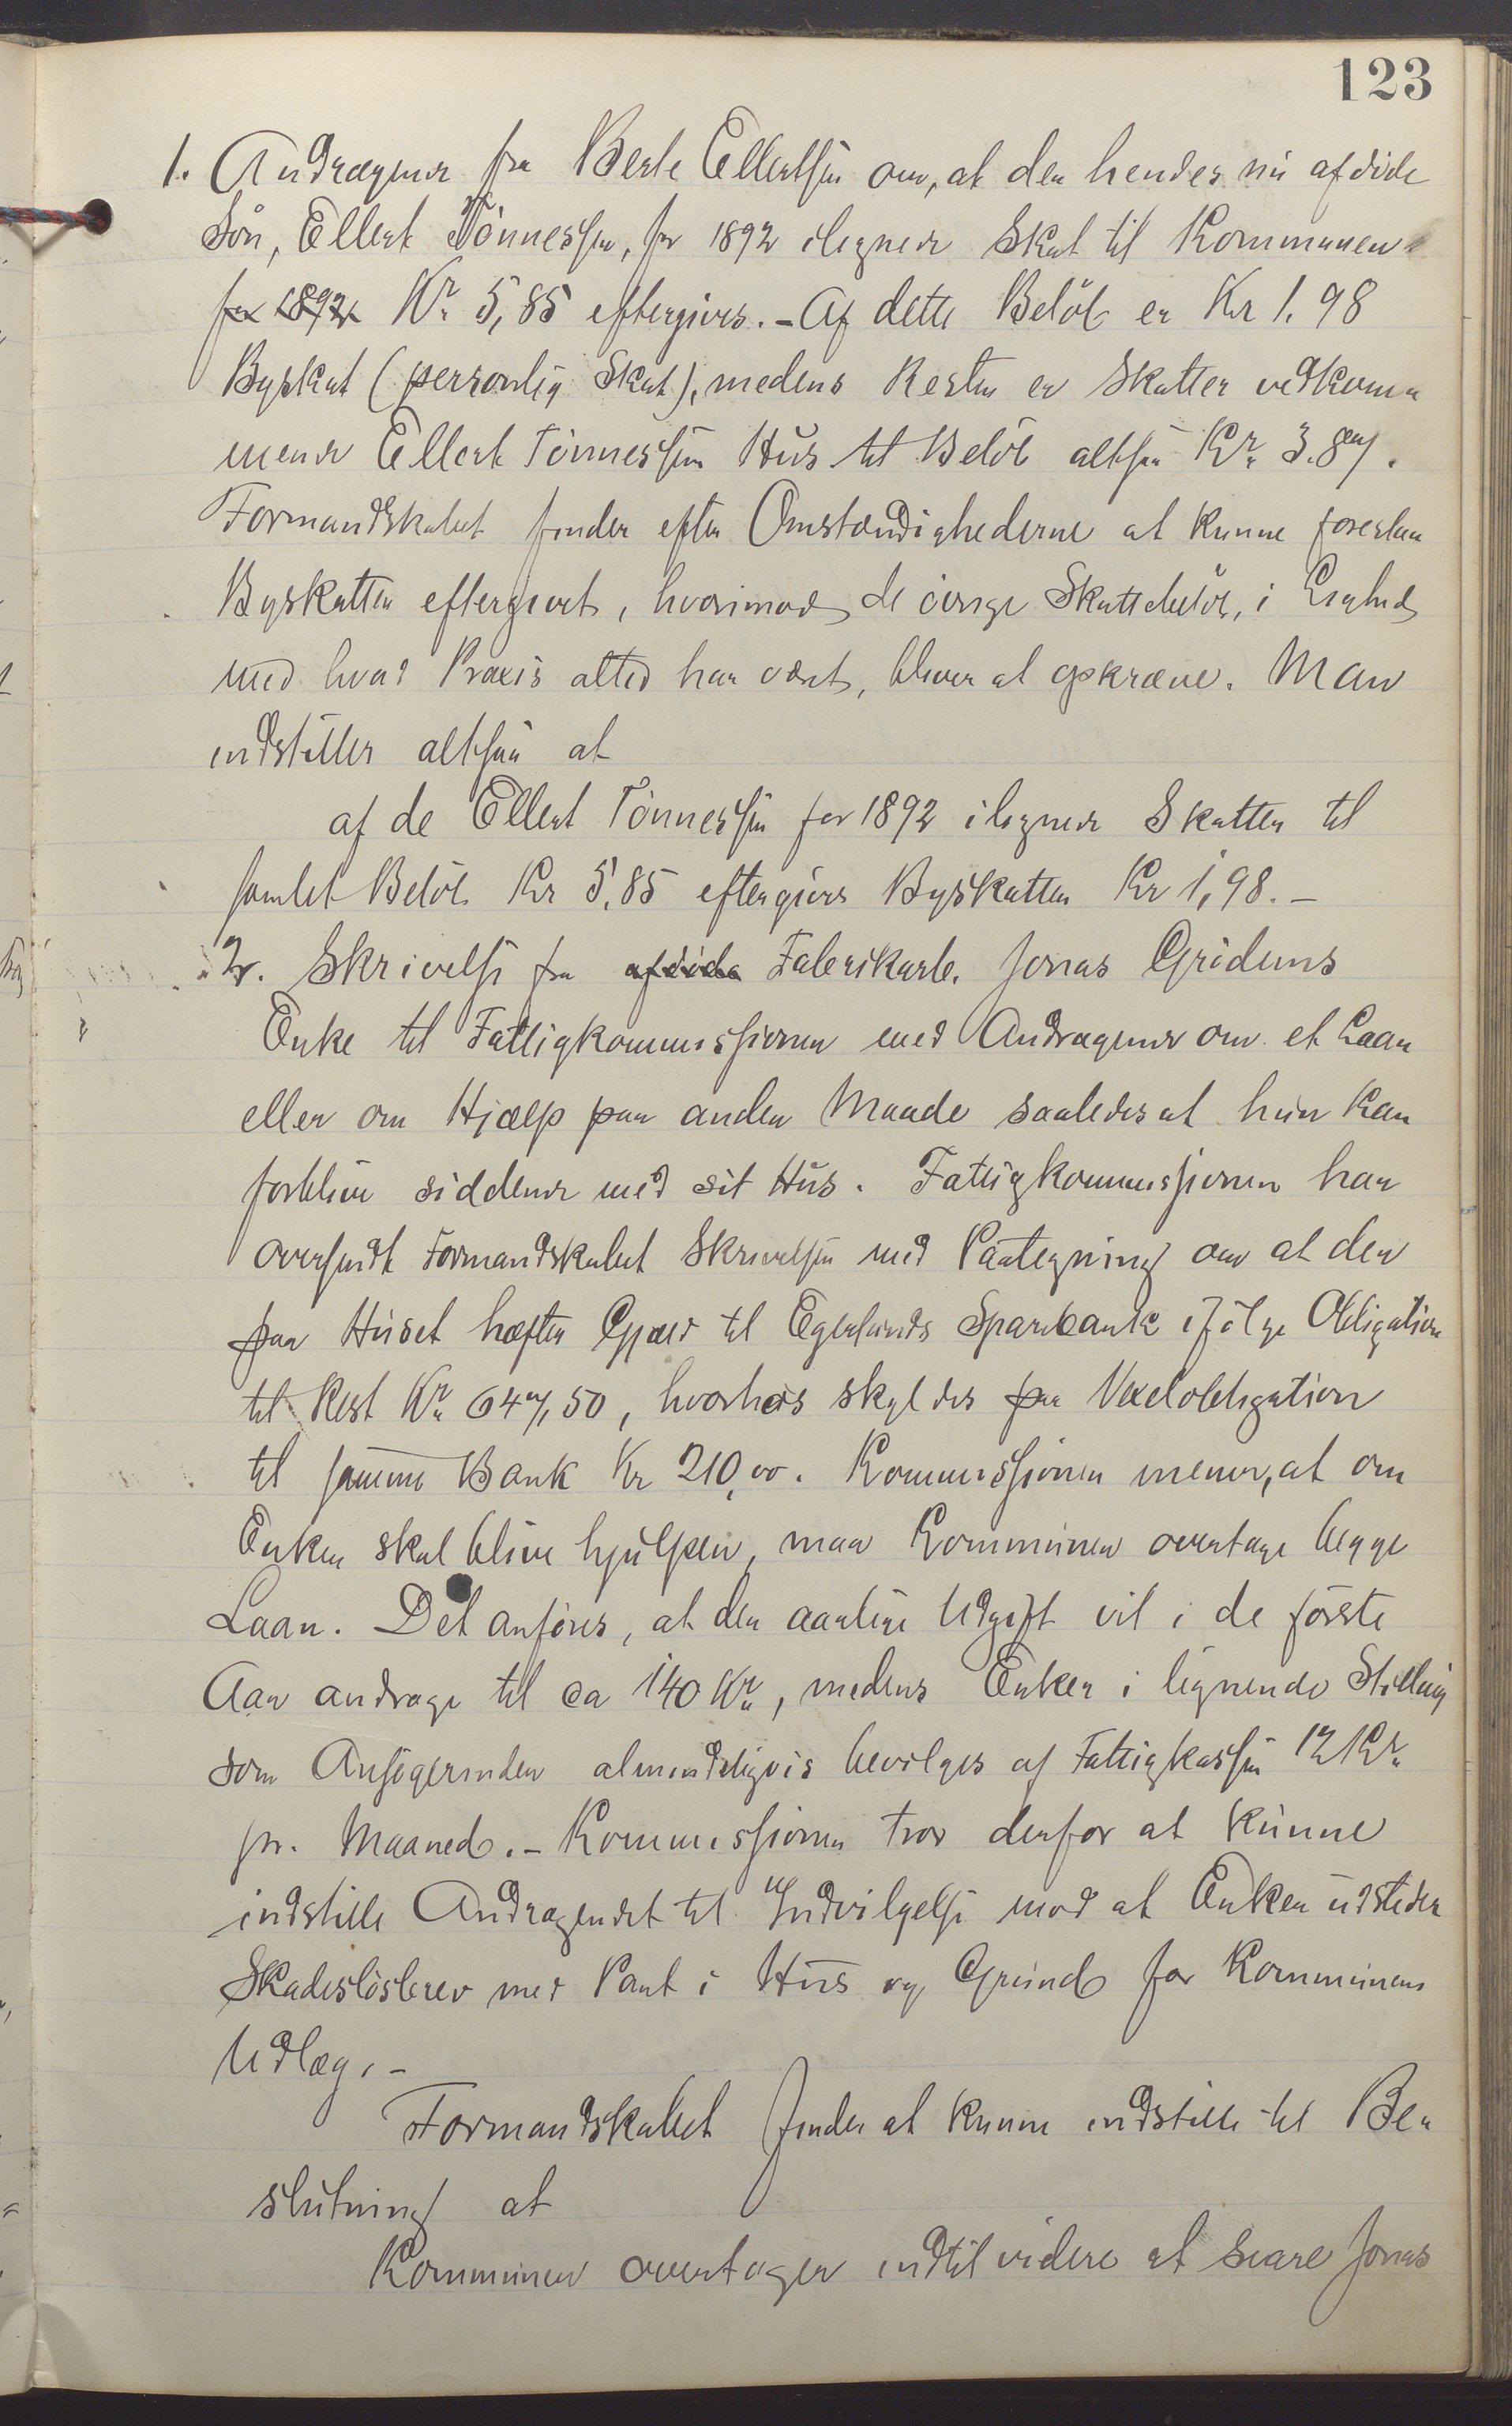 123
1. Andragende fra Berte Ellertsen om, at den hendes nu afdøde
Søn, Ellert Tønnessen, for 1892 ilignede Skat til Kommunen
for 1892 Kr. 5,85 eftergives. - Af dette Beløb er Kr 1.98
Byskat (personlig Skat), medens Resten er Skatter vedkom-
mende Ellert Tønnessens Hus til Beløb altsaa Kr. 3.87.
Formandskabet finder efter Omstændighederne at kunne foreslaa
Byskatten eftergivet, hvorimod de øvrige Skattebeløb, i Lighed
med hvad Praxis altid har været, bliver at opkræve. Man
indstiller altsaa at
af de Ellert Tønnessen for 1892 ilignede Skatter til
samlet Beløb Kr 5,85 eftergives Byskatten Kr 1,98. -
2. Skrivelse fra afdøde Fabrikarb. Jonas Grødems
Enke til Fattigkommissionen med Andragende om et Laan
eller om Hjælp paa anden Maade saaledes at hun kan
forblive siddende med sit Hus. Fattigkommissionen har
oversendt Formandskabet Skrivelsen med Paategning om at der
paa Huset hefter Gjæld til Egersunds Sparebank ifølge Obligation
til Rest Kr. 647,50, hvorhos skyldes paa Vexelobligation
til samme Bank Kr 210,00. Kommissionen mener, at om
Enken skal blive hjulpen, maa Kommunen overtage begge
Laan. Det anføres, at den aarlige Udgift vil i de første
Aar andrage til ca 140 Kr., medens Enker i lignende Stilling
som Ansøgerinden almindeligvis bevilges af Fattigkassen 12 Kr.
pr. Maaned. - Kommissionen tror derfor at kunne
indstille Andragendet til Indvilgelse mod at Enken udsteder
Skadesløsbrev med Pant i Hus og Grund for Kommunens
Udlæg. -
Formandskabet finder at kunne indstille til Be-
slutning at
Kommunen overtager indtil videre at svare Jonas